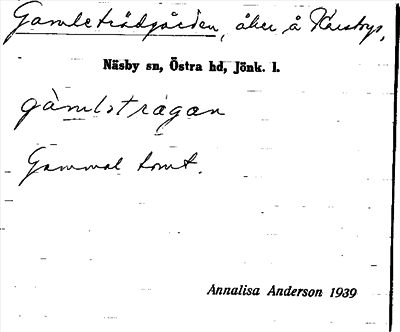 Gamleträdgården, åker å Karstorp,
Näsby sn, Östra hd, Jönk. l.
gàmlətrágan
Gammal tomt.
Annalisa Anderson 1939